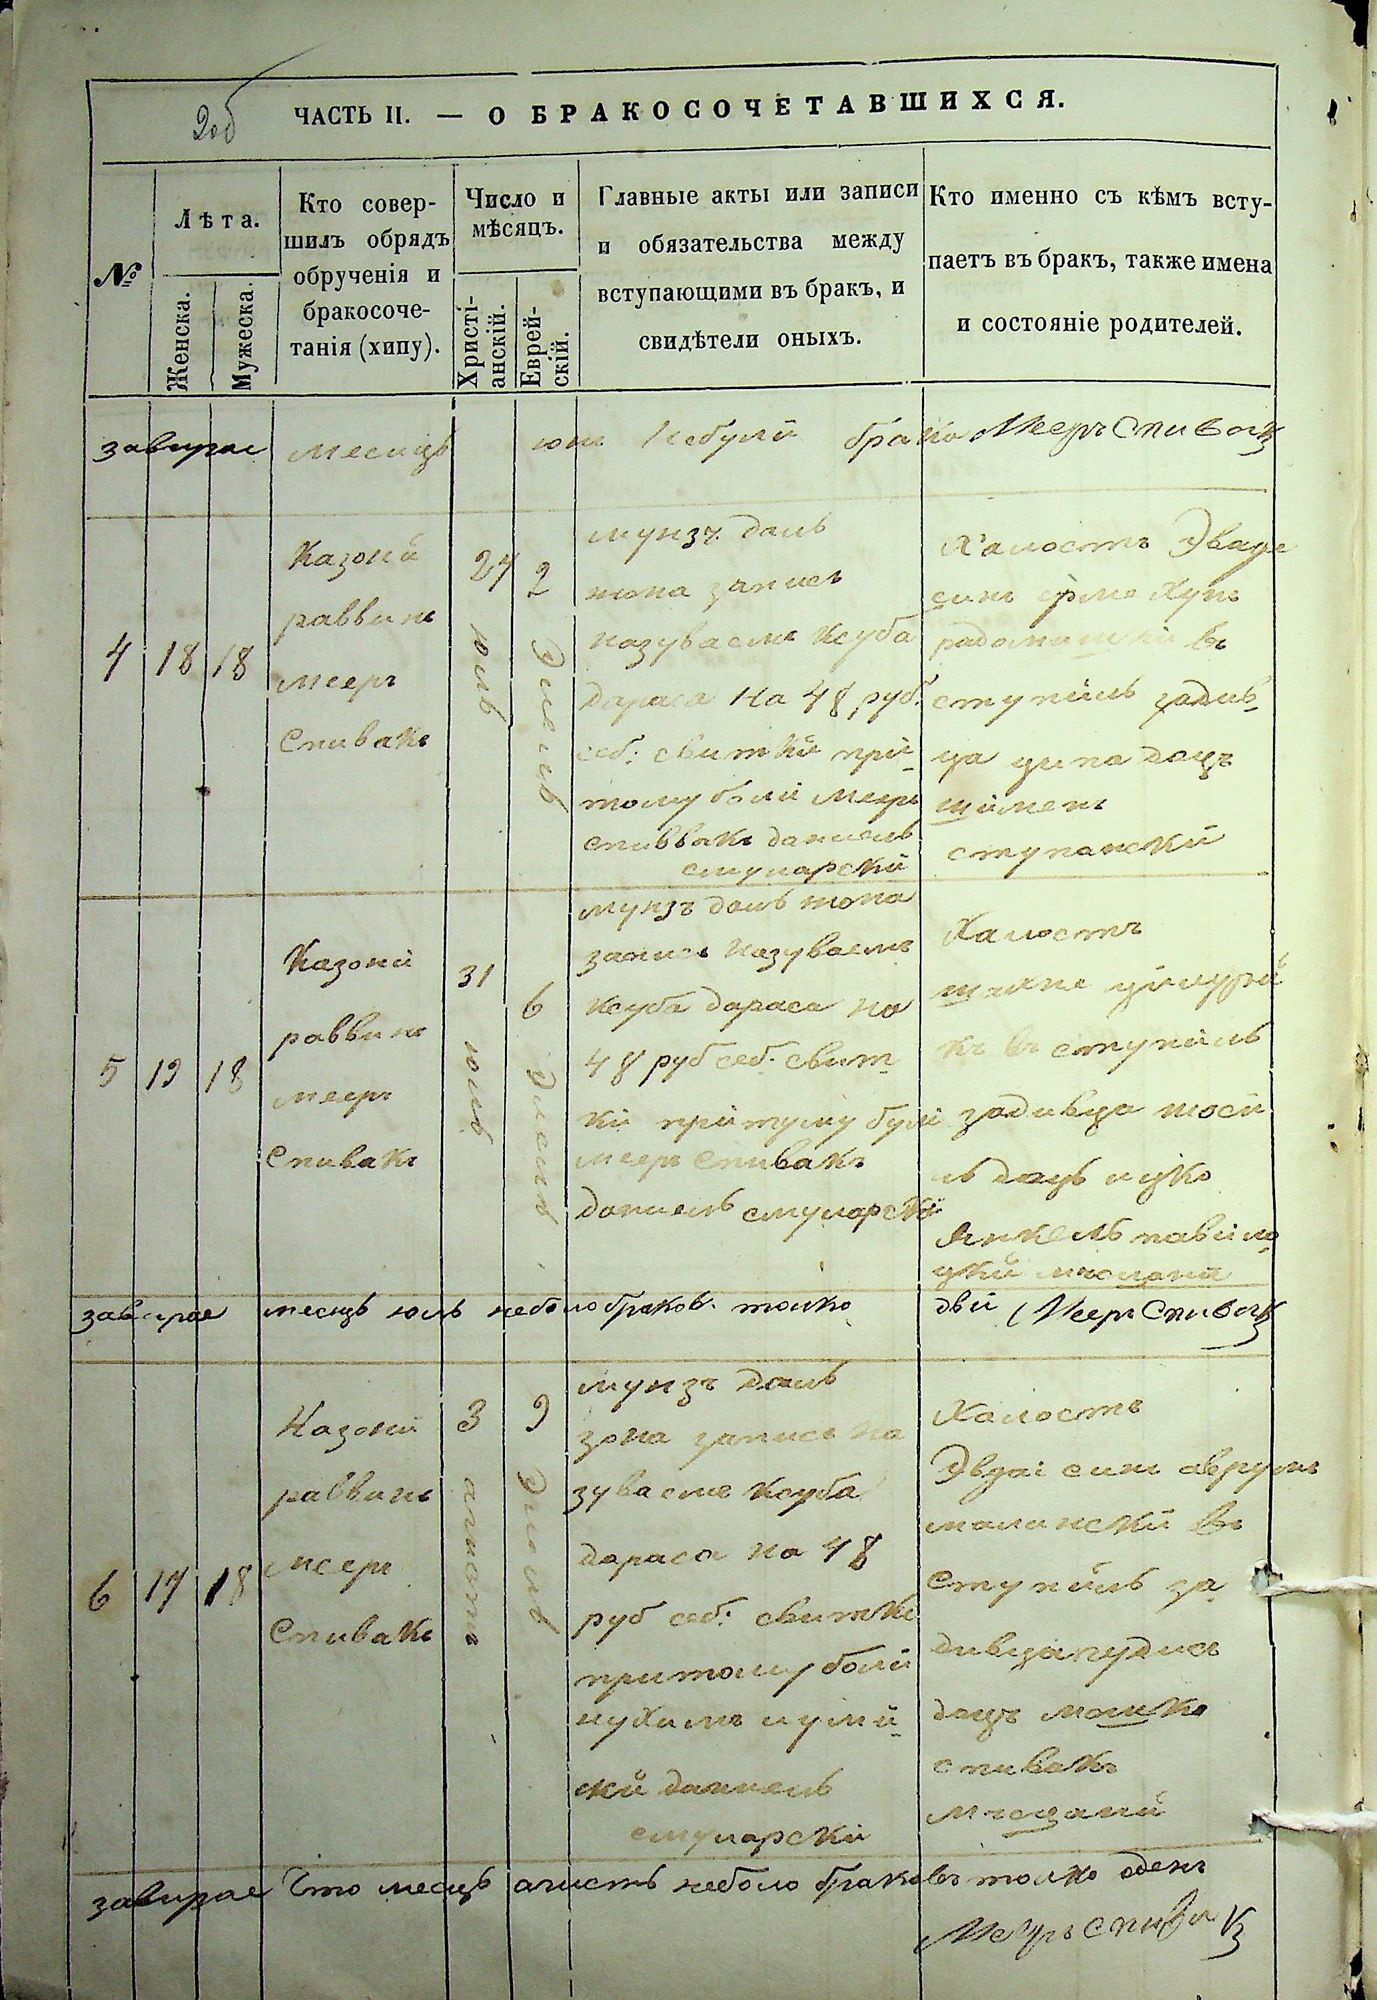 2об
ЧАСТЬ II. — О БРАКОСОЧЕТАВШИХСЯ.
№
Лѣта.
Женска.
Мужеска.
Кто совер-
шилъ обрядъ
обрученія и
бракосоче-
танія (хипу).
Число и
мѣсяцъ.
Христі-
анскій.
Еврей-
скій.
Главные акты или записи
и обязательства между
вступающими въ бракъ, и
свидѣтели оныхъ.
Кто именно съ кѣмъ всту-
паетъ въ бракъ, также имена
и состояніе родителей.
завирае месицъ юн небули брако Мееръ Спивакъ
4
18
18
Казоній
раввинъ
мееръ
Спивакъ
27
юль
2
мунзъ далъ
жона записъ
назуваемъ Ксуба
дараса на 48 руб.
себ. свиткй прі-
тому болй Мееръ
спиввакъ даниелъ
смуларскій
Халостъ
синъ
въ
ступилъ задив-
ца ципа доцъ
шймень
ступанскій
5
19
18
Казоній
раввинъ
мееръ
Спивакъ
31
юль
6
мунзъ далъ жона
записъ назуваемъ
Ксуба дараса на
48 руб себ. свит-
кі прітуму булі
меер Спивакъ
даниелъ смуларскі
Халостъ
къ вступилъ
задивца
ль доцъ ицко
Янкелъ
завирае месецъ юль неболо браков. толко двй Меер Спивакъ
6
17
18
Казоній
раввинъ
меер
Спивакъ
3
агистъ
9
мунзъ далъ
зона записъ на
зуваемъ Ксуба
дараса на 48
руб себ: свиткі
притому болй
нухимъ
кй даниелъ
смуларскій
Халостъ
синъ аврумъ
въ
ступилъ за
дивца
доцъ мошко
спивакъ
мъсцаній
завирае что месецъ агистъ неболо браковъ толко оденъ
Меерь Спивакъ